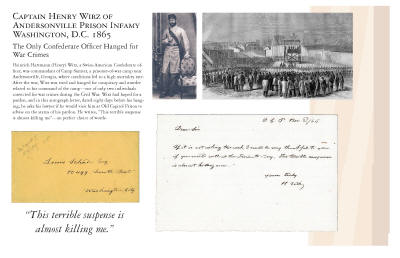 Captain Henry Wirz of
Andersonville Prison Infamy
Washington, D.C. 1865
The Only Confederate Officer Hanged for
War Crimes
Heinrich Hartmann (Henry) Wirz, a Swiss-American Confederate of-
ficer, was commandant of Camp Sumter, a prisoner-of-war camp near
Andersonville, Georgia, where conditions led to a high mortality rate.
After the war, Wirz was tried and hanged for conspiracy and murder
related to his command of the camp—one of only two individuals
convicted for war crimes during the Civil War. Wirz had hoped for a
pardon, and in this autograph letter, dated eight days before his hang-
ing, he asks his lawyer if he would visit him at Old Capitol Prison to
advise on the status of his pardon. He writes, "This terrible suspense
is almost killing me"—a perfect choice of words.
Louis Schade Esq
Washington City
O C P Nov 2/65
Dear Sir
If it is not asking too much I would be very thankful to you
if you would call at the to day. This terrible suspense
is almost killing me.
Yours truly
H Wirz
"This terrible suspense is
almost killing me."